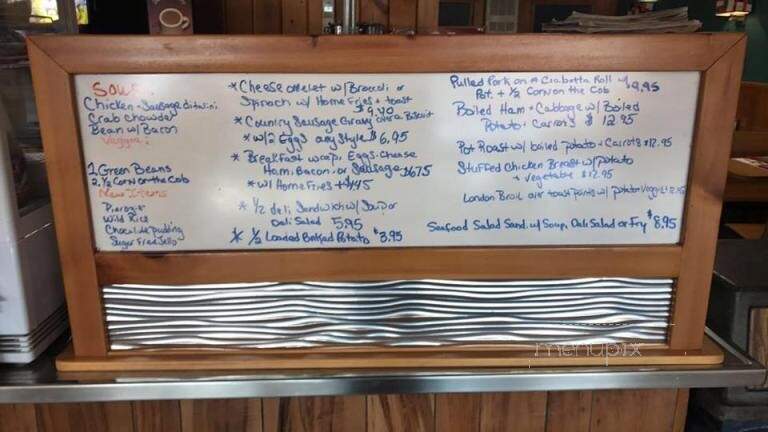 Soup
Chicken - Sausage ditalini
Crab Chowder
Bean w/ Bacon
Veggie:
1 Green Beans
2 1/2 Corn on the Cob
New Items
Pierogi's
Wild Rice
Chocolate pudding
Sugar Free Jello
* Cheese omelet w/ Broccoli or
Spinach w/ Home Fries + toast
$9.40
* Country Sausage Gravy over a Biscuit
* w/ 2 Eggs any Style $6.95
* Breakfast wrap, Eggs, Cheese
Ham, Bacon, or Sausage $6.75
* w/ Home Fries + $1.45
* 1/2 deli Sandwich w/ Soup or
Deli Salad 5.95
* 1/2 Loaded Baked Potato $3.95
Pulled Pork on A Ciabatta Roll w/ $9.95
Pot. + 1/2 Corn on the Cob
Boiled Ham + Cabbage w/ Boiled
Potato + Carrots $12.95
Pot Roast w/ boiled potato + Carrots $12.95
Stuffed Chicken Breast w/ potato
+ vegetable $12.95
London Broil over toast points w/ potato + Veggie $12.95
Seafood Salad Sand. w/ Soup, Deli Salad or Fry $8.95
menupix